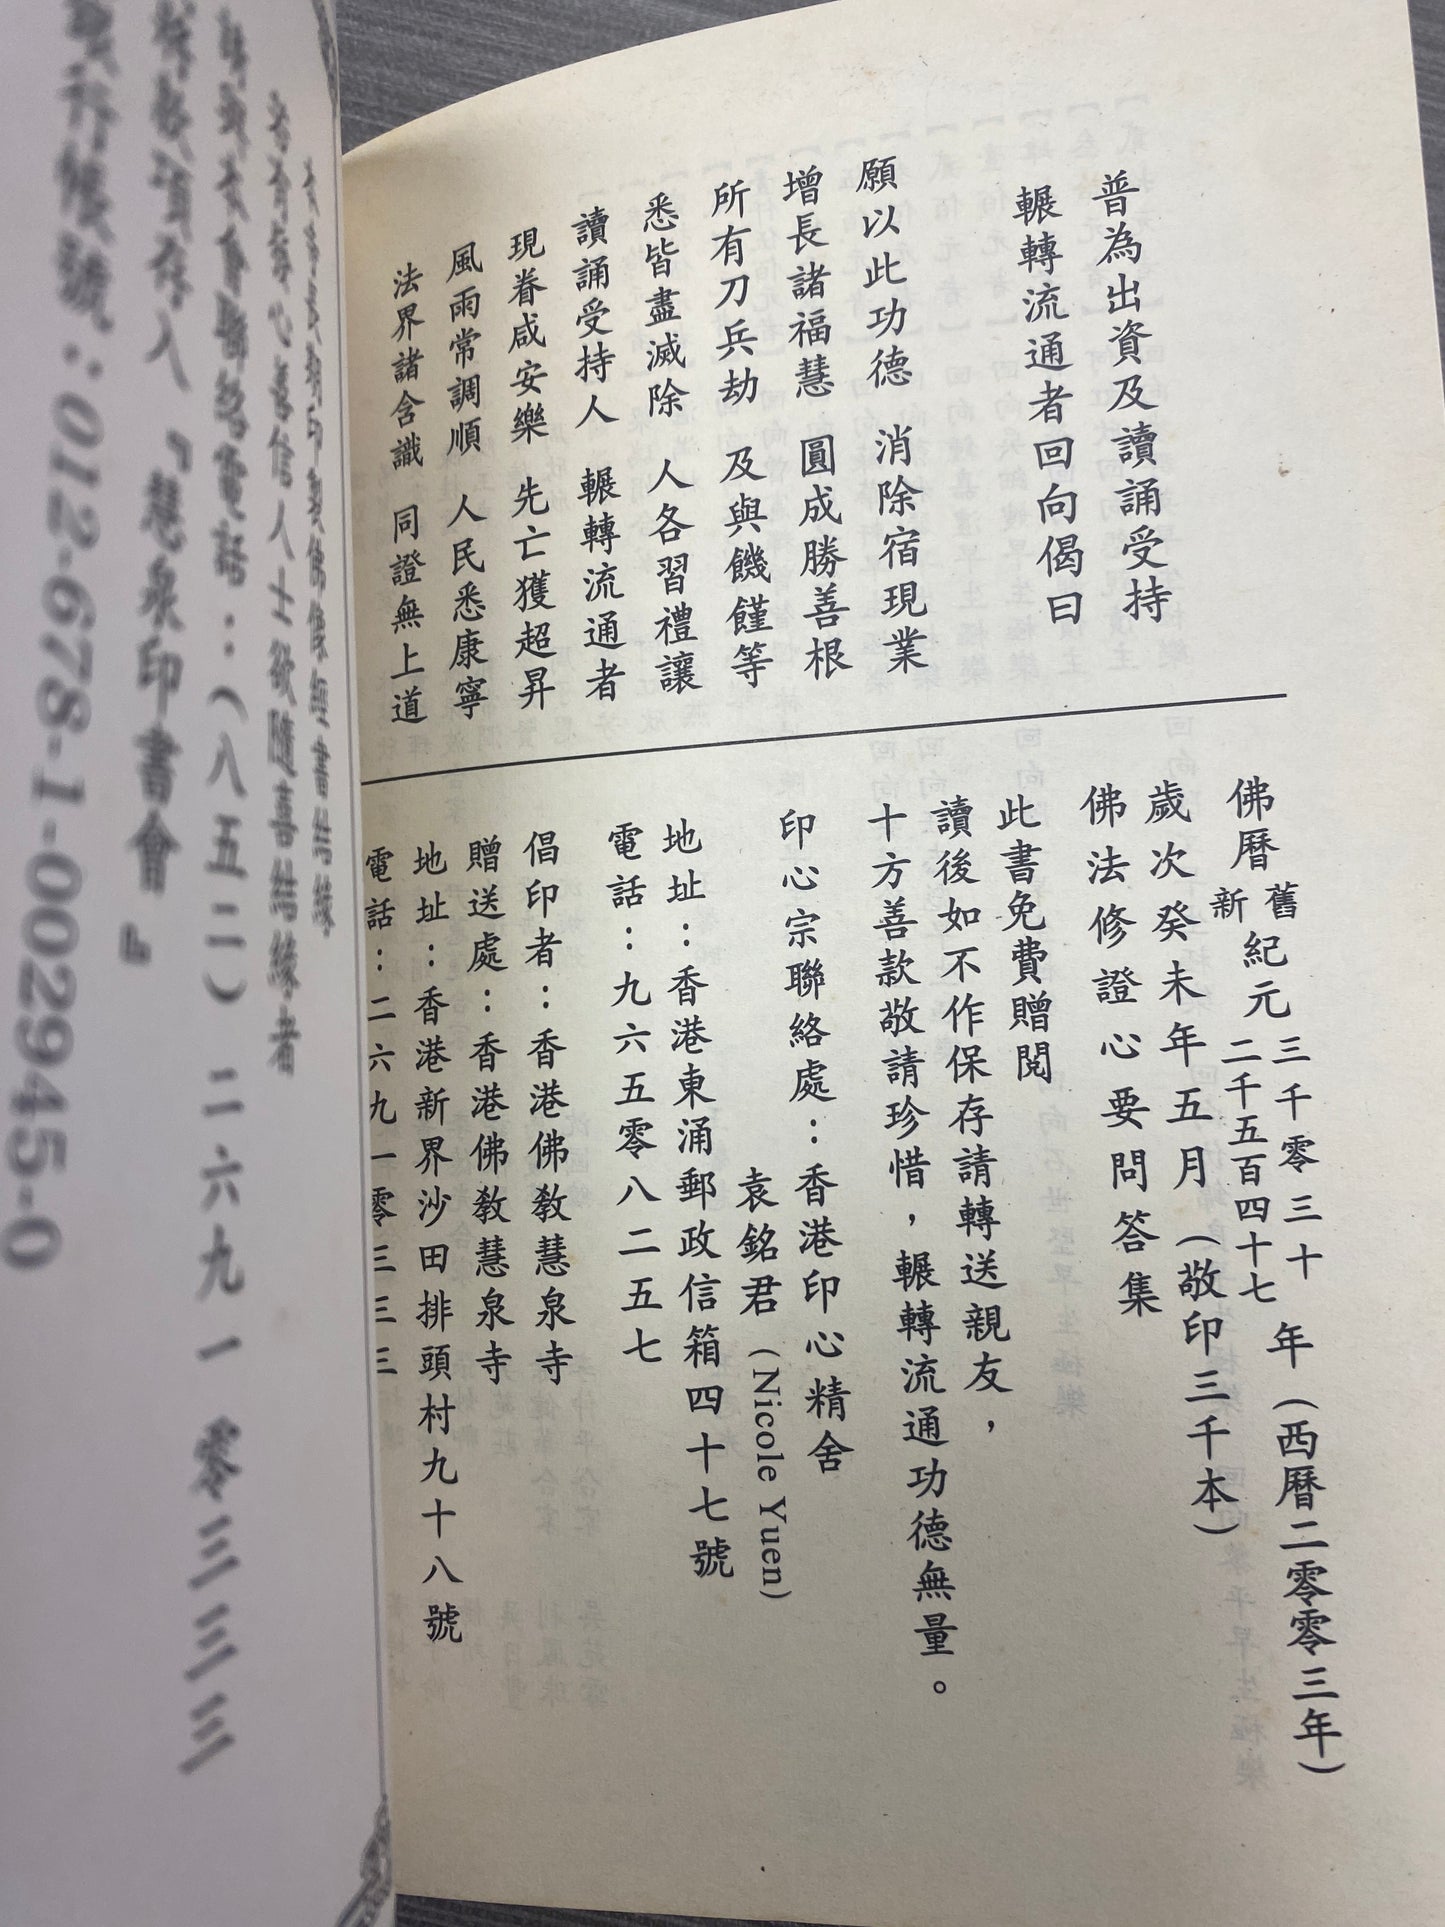 普為出資及讀誦受持
輾轉流通者回向偈曰
願以此功德 消除宿現業
增長諸福慧 圓成勝善根
所有刀兵劫 及與饑饉等
悉皆盡滅除 人各習禮讓
讀誦受持人 輾轉流通者
現眷咸安樂 先亡獲超昇
風雨常調順 人民悉康寧
法界諸含識 同證無上道
佛曆舊新紀元三千零三十二千五百四十七年（西曆二零零三年）
歲次癸未年五月（敬印三千本）
佛法修證心要問答集
此書免費贈閱
讀後如不作保存請轉送親友，
十方善款敬請珍惜，輾轉流通功德無量。
印心宗聯絡處：香港印心精舍
袁銘君（Nicole Yuen）
地址：香港東涌郵政信箱四十七號
電話：九六五零八二五七
倡印者：香港佛教慧泉寺
贈送處：香港佛教慧泉寺
地址：香港新界沙田排頭村九十八號
電話：二六九一零三三三
印製佛像經書結緣
善信人士欲隨喜結緣者
電話：（八五二）二六九一零三三三
存入『慧泉印書會』
號：012-678-1-002945-0